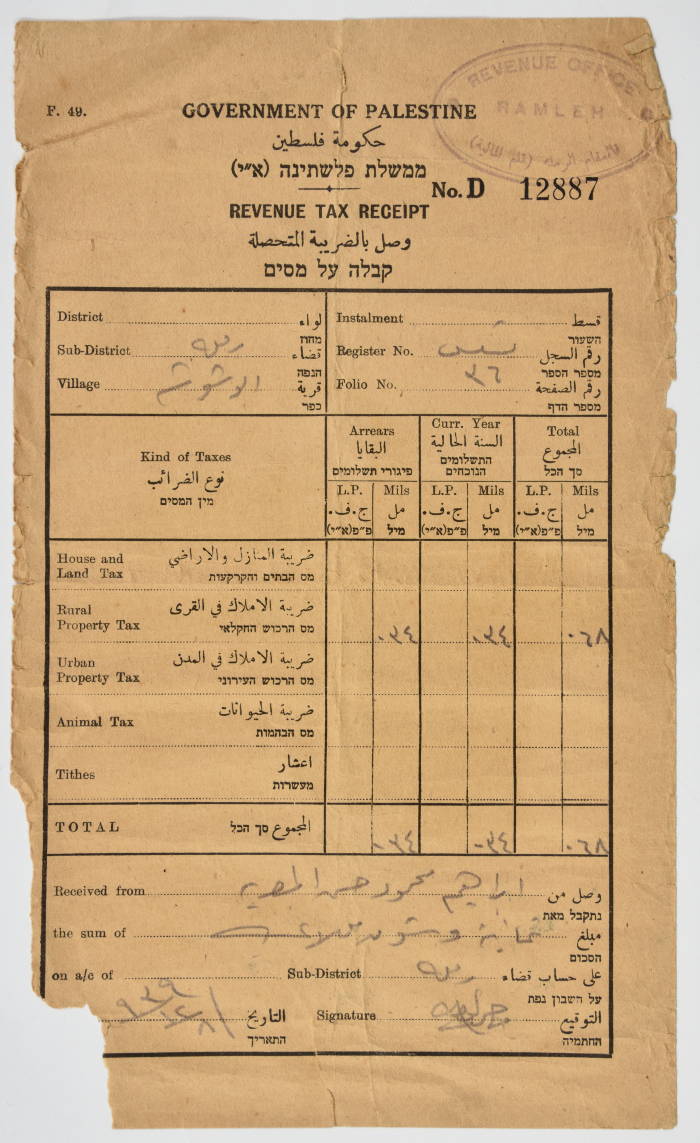 REVENUE OFFICE
RAMLEH
F. 49.
GOVERNMENT OF PALESTINE
حكومة فلسطين
ממשלת פלשתינה (א״י)
No. D 12887
REVENUE TAX RECEIPT
وصل بالضريبة المتحصلة
קבלה על מסים
District لواء
מחוז
Sub-District قضاء
הנפה
Village قرية
כפר
Instalment قسط
השעור
Register No. رقم السجل
מספר הספר
Folio No. ٣٦ رقم الصفحة
מספר הדף
Kind of Taxes
نوع الضرائب
מין המסים
Arrears
البقايا
פיגורי תשלומים
Curr. Year
السنة الحالية
התשלומים הנוכחים
Total
المجموع
סך הכל
L.P. Mils L.P. Mils L.P. Mils
ج.ف. مل ج.ف. مل ج.ف. مل
פ״פ(א״י) מיל פ״פ(א״י) מיל פ״פ(א״י) מיל
House and Land Tax ضريبة المنازل والاراضي
מס הבתים והקרקעות
Rural Property Tax ضريبة الاملاك في القرى
מס הרכוש החקלאי
٠٣٤ ٠٣٤ ٠٦٨
Urban Property Tax ضريبة الاملاك في المدن
מס הרכוש העירוני
Animal Tax ضريبة الحيوانات
מס הבהמות
Tithes اعشار
מעשרות
TOTAL المجموع סך הכל
٠٣٤ ٠٣٤ ٠٦٨
Received from ابراهيم محمود حسن وصل من
נתקבל מאת
the sum of ثمانية وستون مبلغ
הסכום
on a/c of Sub-District على حساب قضاء
על חשבון נפת
التاريخ Signature التوقيع
התאריך החתמיה